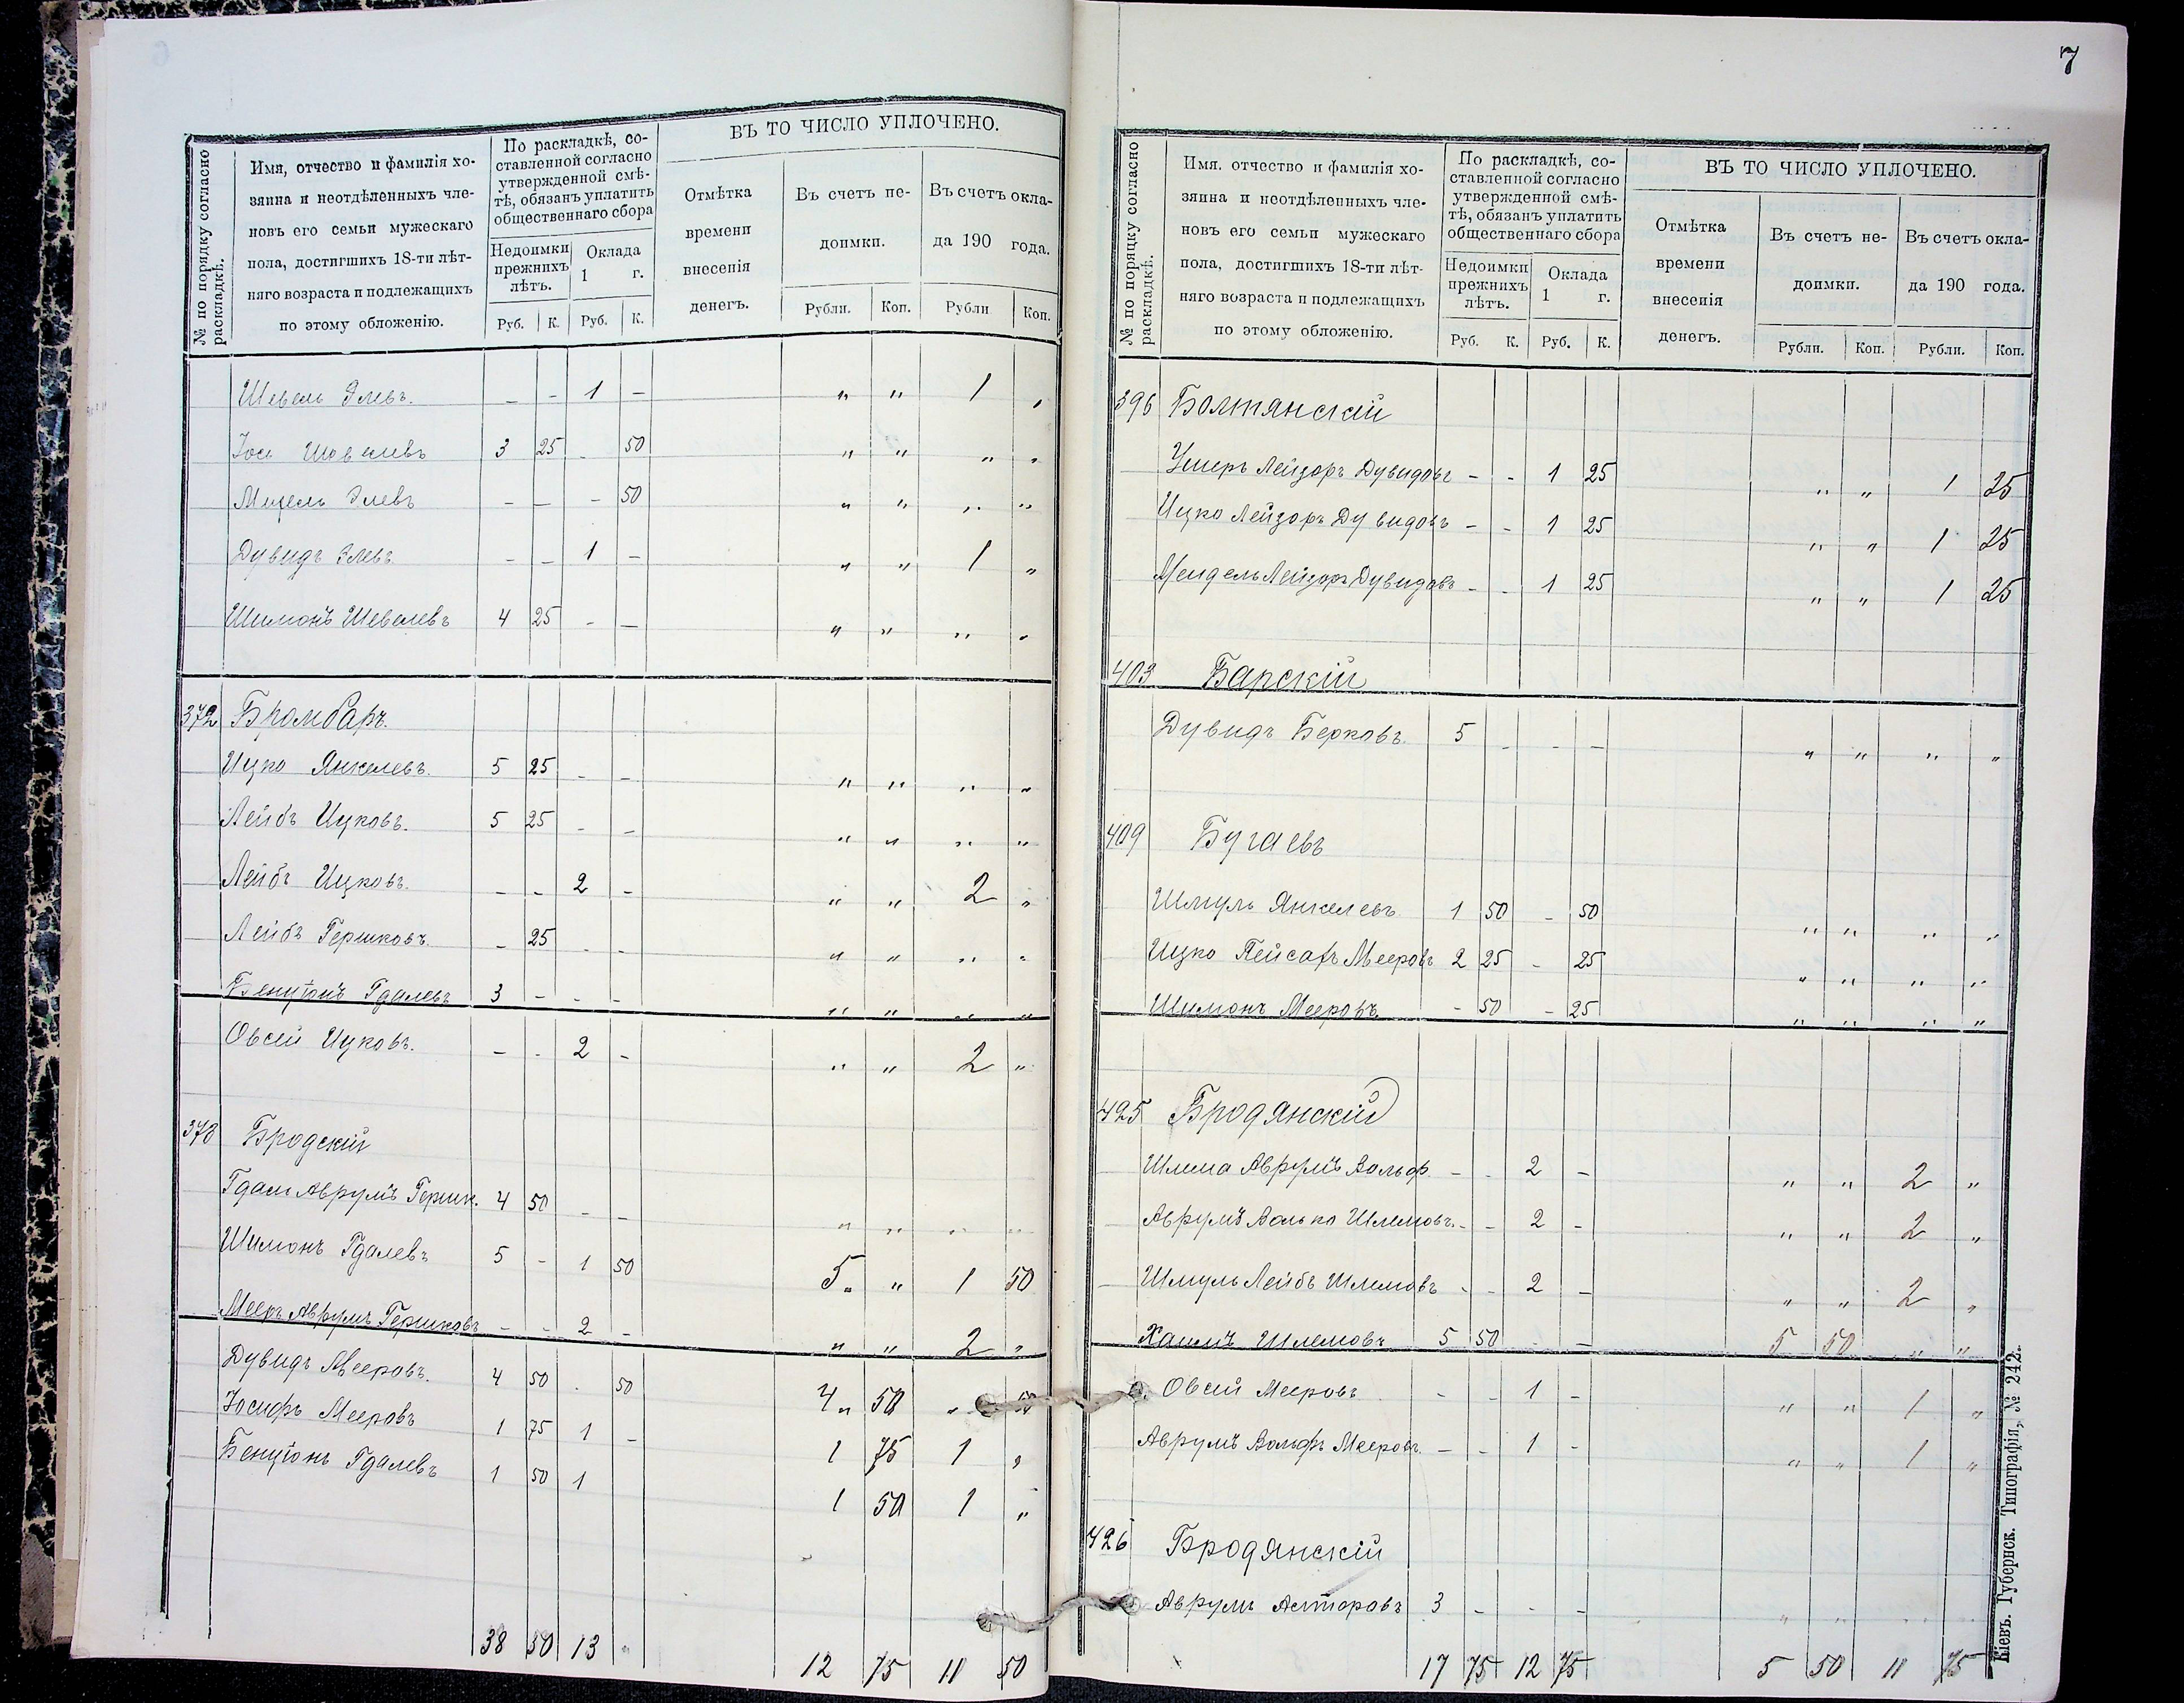 7
№ по порядку согласно раскладкѣ.
Имя, отчество и фамилія хо-
зяина и неотдѣленныхъ чле-
новъ его семьи мужескаго
пола, достигшихъ 18-ти лѣт-
няго возраста и подлежащихъ
по этому обложенію.
По раскладкѣ, со-
ставленной согласно
утвержденной смѣ-
тѣ, обязанъ уплатить
общественнаго сбора
Недоимки прежнихъ лѣтъ.
Оклада 1 г.
Руб. К. Руб. К.
ВЪ ТО ЧИСЛО УПЛОЧЕНО.
Отмѣтка времени внесенія денегъ.
Въ счетъ не-
доимки.
Въ счетъ окла-
да 190 года.
Рубли. Коп. Рубли Коп.
Шевель Элевъ. - - 1 - " " 1 "
Іось Шевелевъ 3 25 - 50 " " " "
Элевъ - - - 50 " " " "
Дувидъ Элевъ - - 1 - " " 1 "
Шимонъ Шевелевъ 4 25 - - " " " "
372 Бромбаръ.
Ицко Янкелевъ. 5 25 - - " " " "
Лейбъ Ицковъ. 5 25 - - " " " "
Лейбъ Ицковъ. - - 2 - " " 2 "
Лейбъ Гершковъ - 25 - - " " " "
Бенціонъ Гдалевъ 3 - - - " " " "
Овсей Ицковъ. - - 2 - " " 2 "
378 Бродскій
Гдаль Аврумъ Гершк. 4 50 - - " " " "
Шимонъ Гдалевъ 5 - 1 50 5 " 1 50
Мееръ Аврумъ Гершковъ - - 2 - " " 2 "
Дувидъ Мееровъ. 4 50 - 50 4 50 " 50
Іосифъ Мееровъ 1 75 1 - 1 75 1 "
Бенціонъ Гдалевъ 1 50 1 1 50 1 "
38 50 13 " 12 75 11 50
№ по порядку согласно раскладкѣ.
Имя, отчество и фамилія хо-
зяина и неотдѣленныхъ чле-
новъ его семьи мужескаго
пола, достигшихъ 18-ти лѣт-
няго возраста и подлежащихъ
по этому обложенію.
По раскладкѣ, со-
ставленной согласно
утвержденной смѣ-
тѣ, обязанъ уплатить
общественнаго сбора
Недоимки прежнихъ лѣтъ.
Оклада 1 г.
Руб. К. Руб. К.
ВЪ ТО ЧИСЛО УПЛОЧЕНО.
Отмѣтка времени внесенія денегъ.
Въ счетъ не-
доимки.
Въ счетъ окла-
да 190 года.
Рубли. Коп. Рубли. Коп.
396 Болтянскій
Ушеръ Лейзоръ Дувидовъ - - 1 25 " " 1 25
Ицко Лейзоръ Дувидовъ - - 1 25 " " 1 25
Мендель Лейзоръ Дувидовъ - - 1 25 " " 1 25
403 Барскій
Дувидъ Берковъ. 5 - - - " " " "
409 Бугаевъ
Шмуль Янкелевъ 1 50 - 50 " " " "
Ицко Пейсахъ Мееровъ 2 25 - 25 " " " "
Шимонъ Мееровъ - 50 - 25 " " " "
425 Бродянскій
Шлема Аврумъ Вольф. - - 2 - " " 2 "
Аврумъ Волько Шлемовъ. - - 2 - " " 2 "
Шмуль Лейбъ Шлемовъ - - 2 - " " 2 "
Хаимъ Шлемовъ 5 50 - - 5 50 " "
Овсей Мееровъ - - 1 - " " 1 "
Аврумъ Вольфъ Мееровъ - - 1 - " " 1 "
426 Бродянскій
Аврумъ 3 - - - " " " "
17 75 12 75 5 50 11 75
Кіевъ. Губернск. Типографія, № 242.